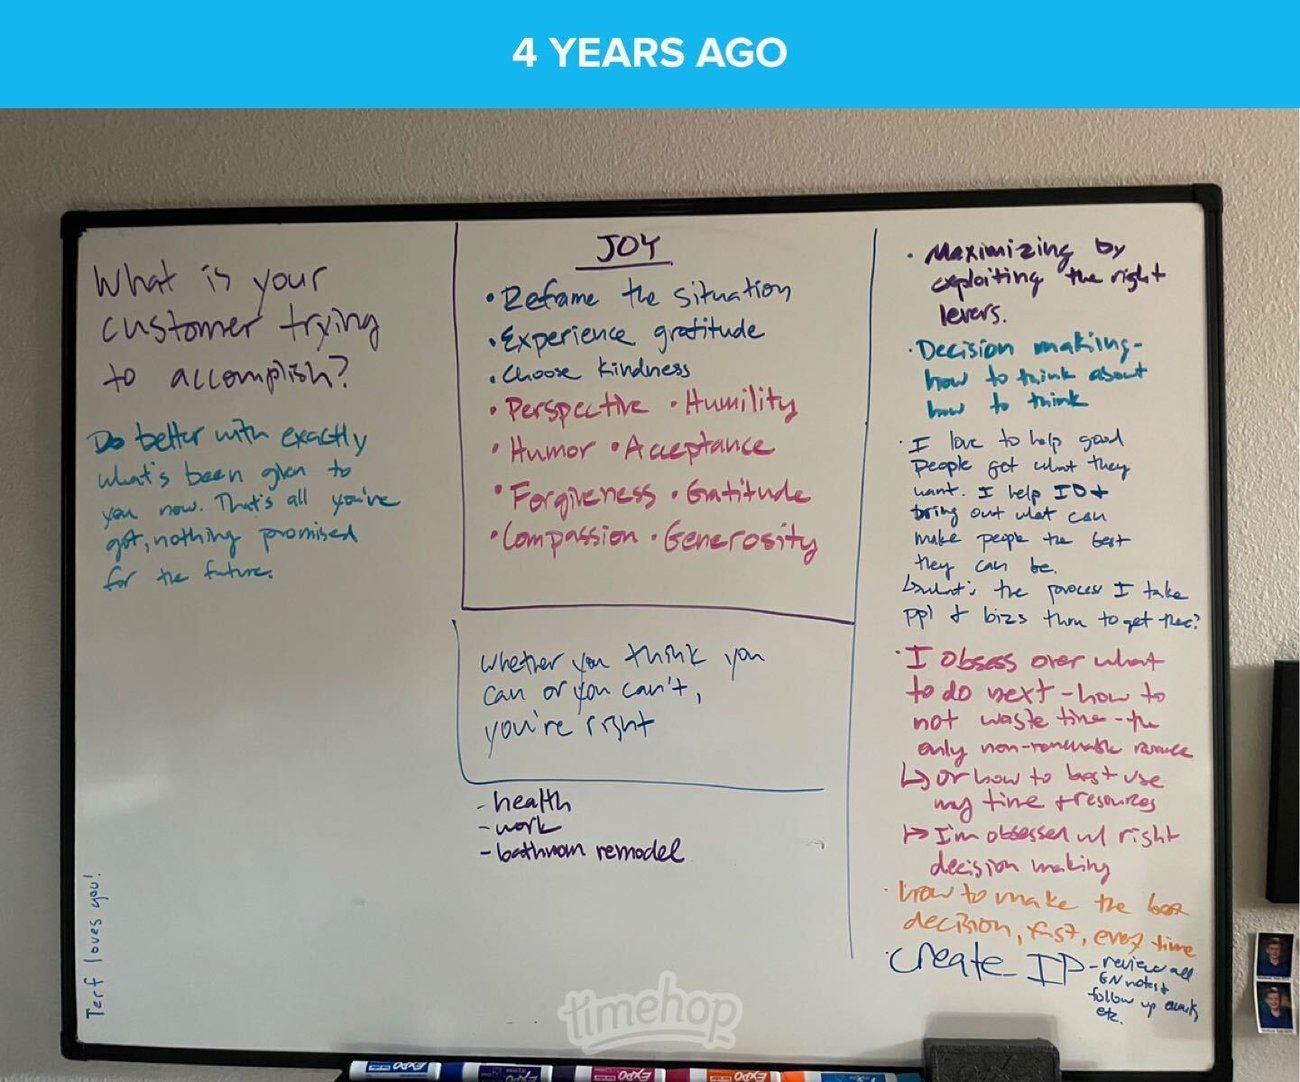 4 YEARS AGO
What is your
customer trying
to accomplish?
Do better with exactly
what's been given to
you now. That's all you've
got, nothing promised
for the future.
Terf loves you!
JOY
• Reframe the situation
• Experience gratitude
• Choose kindness
• Perspective • Humility
• Humor • Acceptance
• Forgiveness • Gratitude
• Compassion • Generosity
Whether you think you
can or you can't,
you're right
- health
- work
- bathroom remodel
• Maximizing by
exploiting the right
levers.
• Decision making-
how to think about
how to think
• I love to help good
people get what they
want. I help ID +
bring out what can
make people the best
they can be.
↳ what's the process I take
ppl + bizs thru to get there?
• I obsess over what
to do next - how to
not waste time - the
only non-renewable resource
↳ or how to best use
my time + resources
↳ I'm obsessed w/ right
decision making
• how to make the best
decision, fast, every time
• Create IP - review all
EN notes +
follow up
etc.
timehop
EXPO
EXPO
EXPO
EXPO